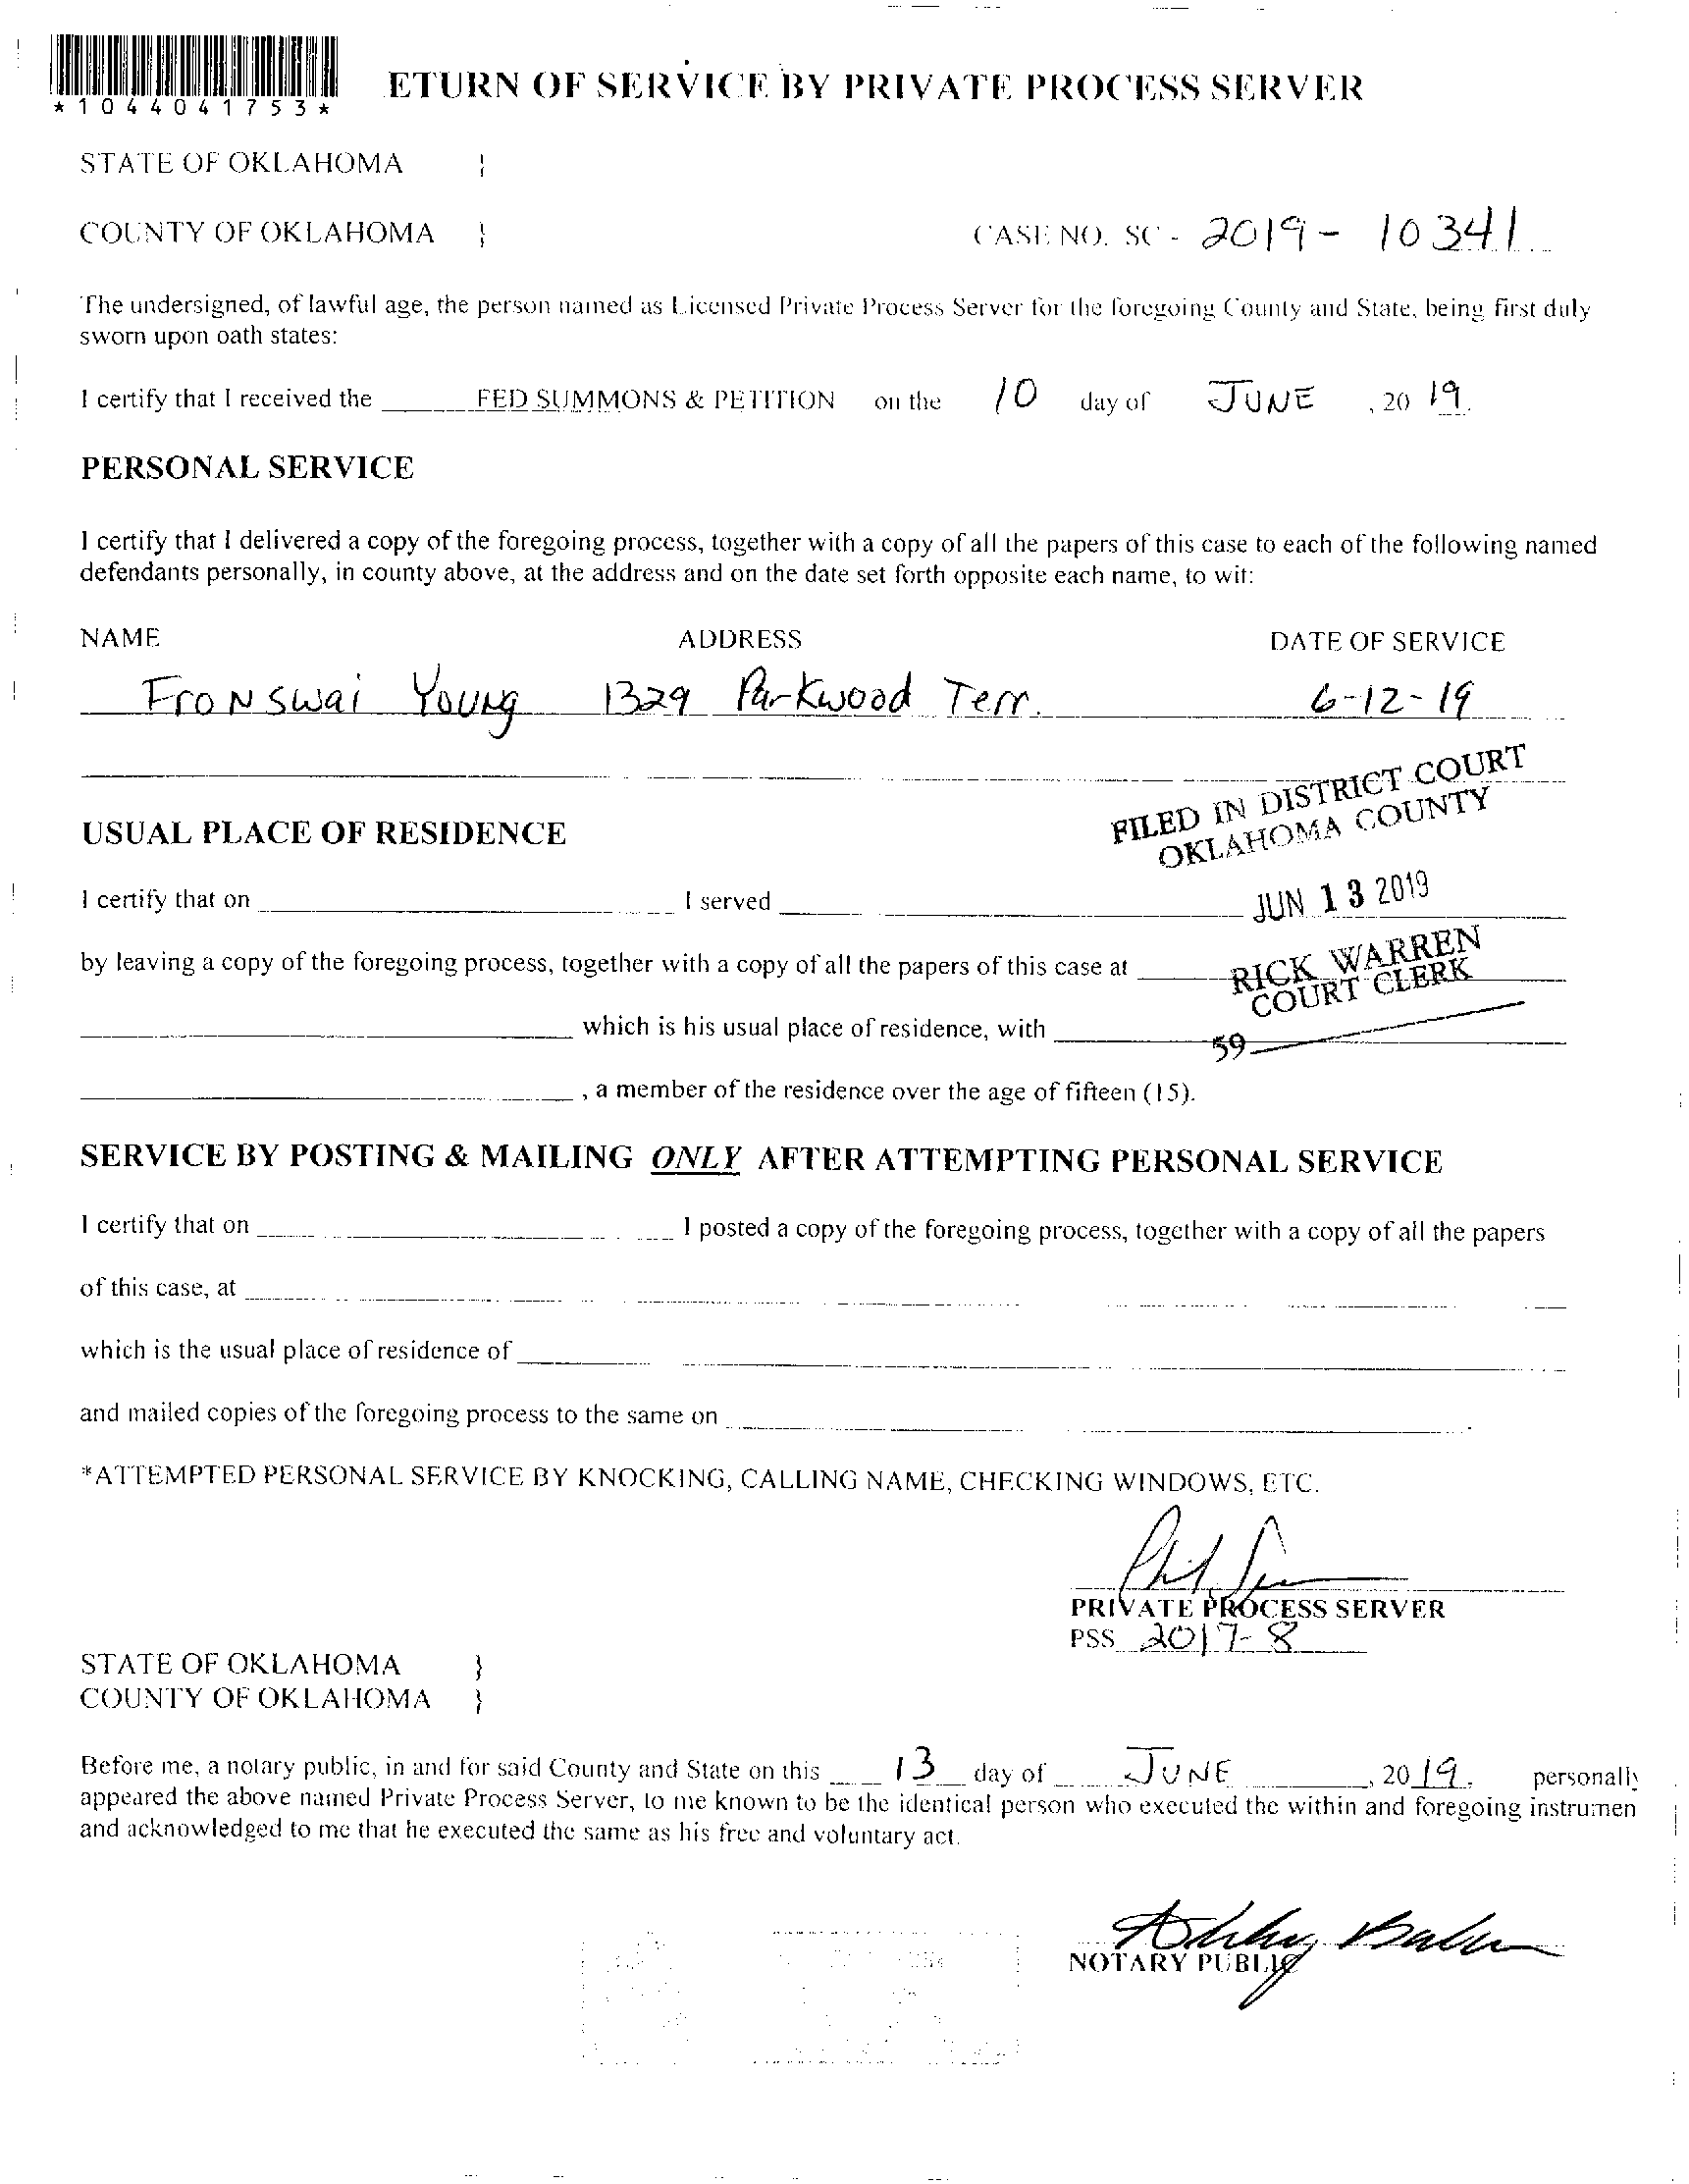 *1044041753*
ETURN OF SERVICE BY PRIVATE PROCESS SERVER
STATE OF OKLAHOMA }
COUNTY OF OKLAHOMA } CASE NO. SC - 2019 - 10341
The undersigned, of lawful age, the person named as Licensed Private Process Server for the foregoing County and State, being first duly
sworn upon oath states:
I certify that I received the FED SUMMONS & PETITION on the 10 day of JUNE , 20 19.
PERSONAL SERVICE
I certify that I delivered a copy of the foregoing process, together with a copy of all the papers of this case to each of the following named
defendants personally, in county above, at the address and on the date set forth opposite each name, to wit:
NAME ADDRESS DATE OF SERVICE
Fronswai Young 1329 Parkwood Terr. 6-12-19
FILED IN DISTRICT COURT
OKLAHOMA COUNTY
USUAL PLACE OF RESIDENCE
JUN 13 2019
I certify that on I served
RICK WARREN
COURT CLERK
by leaving a copy of the foregoing process, together with a copy of all the papers of this case at
59
which is his usual place of residence, with
, a member of the residence over the age of fifteen (15).
SERVICE BY POSTING & MAILING ONLY AFTER ATTEMPTING PERSONAL SERVICE
I certify that on I posted a copy of the foregoing process, together with a copy of all the papers
of this case, at
which is the usual place of residence of
and mailed copies of the foregoing process to the same on .
*ATTEMPTED PERSONAL SERVICE BY KNOCKING, CALLING NAME, CHECKING WINDOWS, ETC.
PRIVATE PROCESS SERVER
PSS 2017-8
STATE OF OKLAHOMA }
COUNTY OF OKLAHOMA }
Before me, a notary public, in and for said County and State on this 13 day of JUNE , 20 19. personally
appeared the above named Private Process Server, to me known to be the identical person who executed the within and foregoing instrumen
and acknowledged to me that he executed the same as his free and voluntary act.
NOTARY PUBLIC